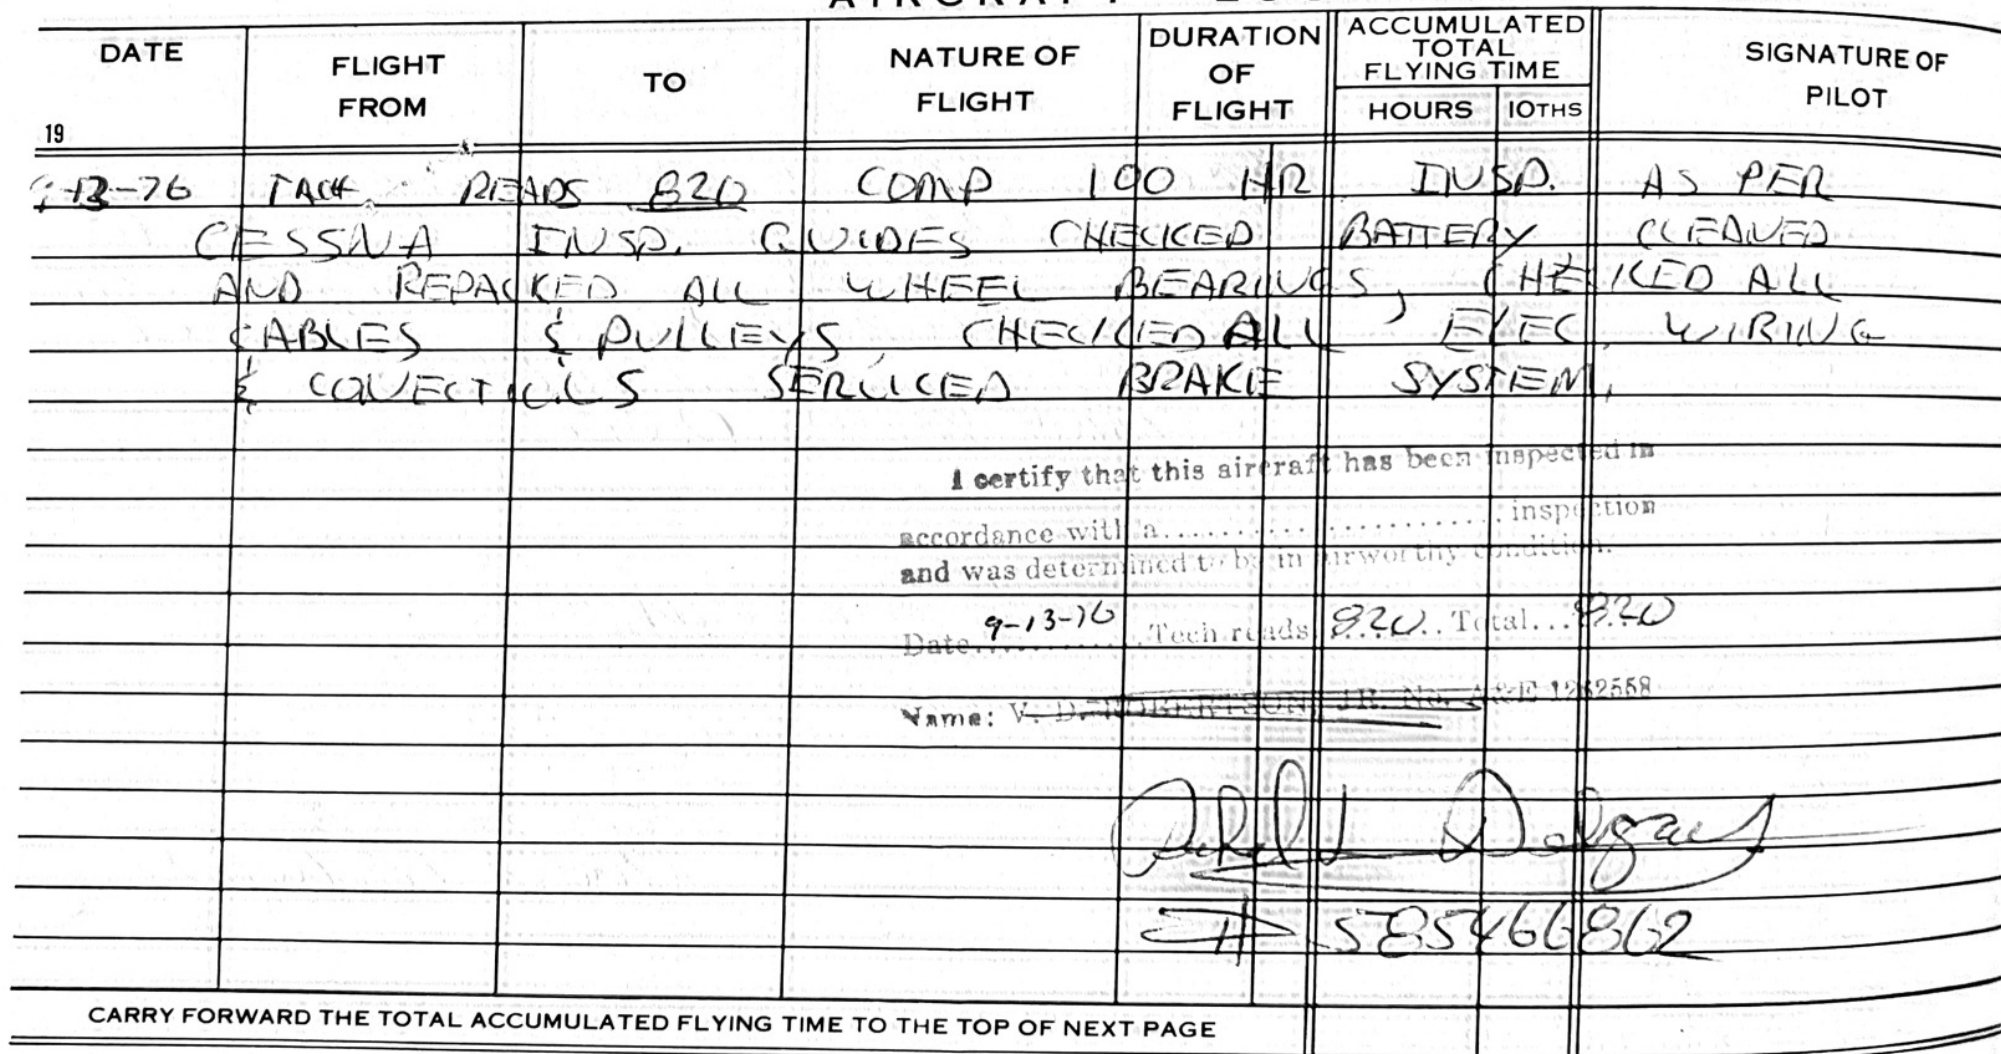 AIRCRAFT
DATE
FLIGHT FROM
TO
NATURE OF FLIGHT
DURATION OF FLIGHT
ACCUMULATED TOTAL FLYING TIME
HOURS 10THS
SIGNATURE OF PILOT
19
-13-76 TACH READS 820 COMP 100 HR INSP. AS PER
CESSNA INSP. GUIDES CHECKED BATTERY CLEANED
AND REPACKED ALL WHEEL BEARINGS, CHECKED ALL
CABLES & PULLEYS, CHECKED ALL ELEC. WIRING
& CONECTIONS SERVICED BRAKE SYSTEM.
I certify that this aircraft has been inspected in
accordance with a.......................... inspection
and was determined to be in airworthy condition.
Date 9-13-76 Tech reads 820 Total 820
Name: V. D. ROBERTSON JR. No. A&E 1262558
# 585466862
CARRY FORWARD THE TOTAL ACCUMULATED FLYING TIME TO THE TOP OF NEXT PAGE